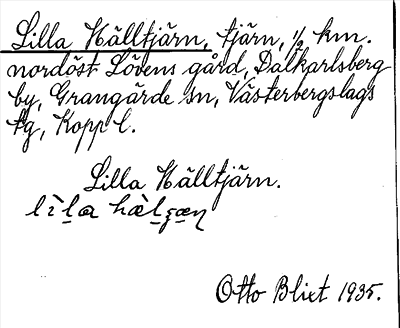 Lilla Hälltjärn, tjärn, ½ km.
nordöst Lövens gård, Dalkarlsberg
by, Grangärde sn, Västerbergslags
tg, Kopp l.
Lilla Hälltjärn.
Otto Blixt 1935.